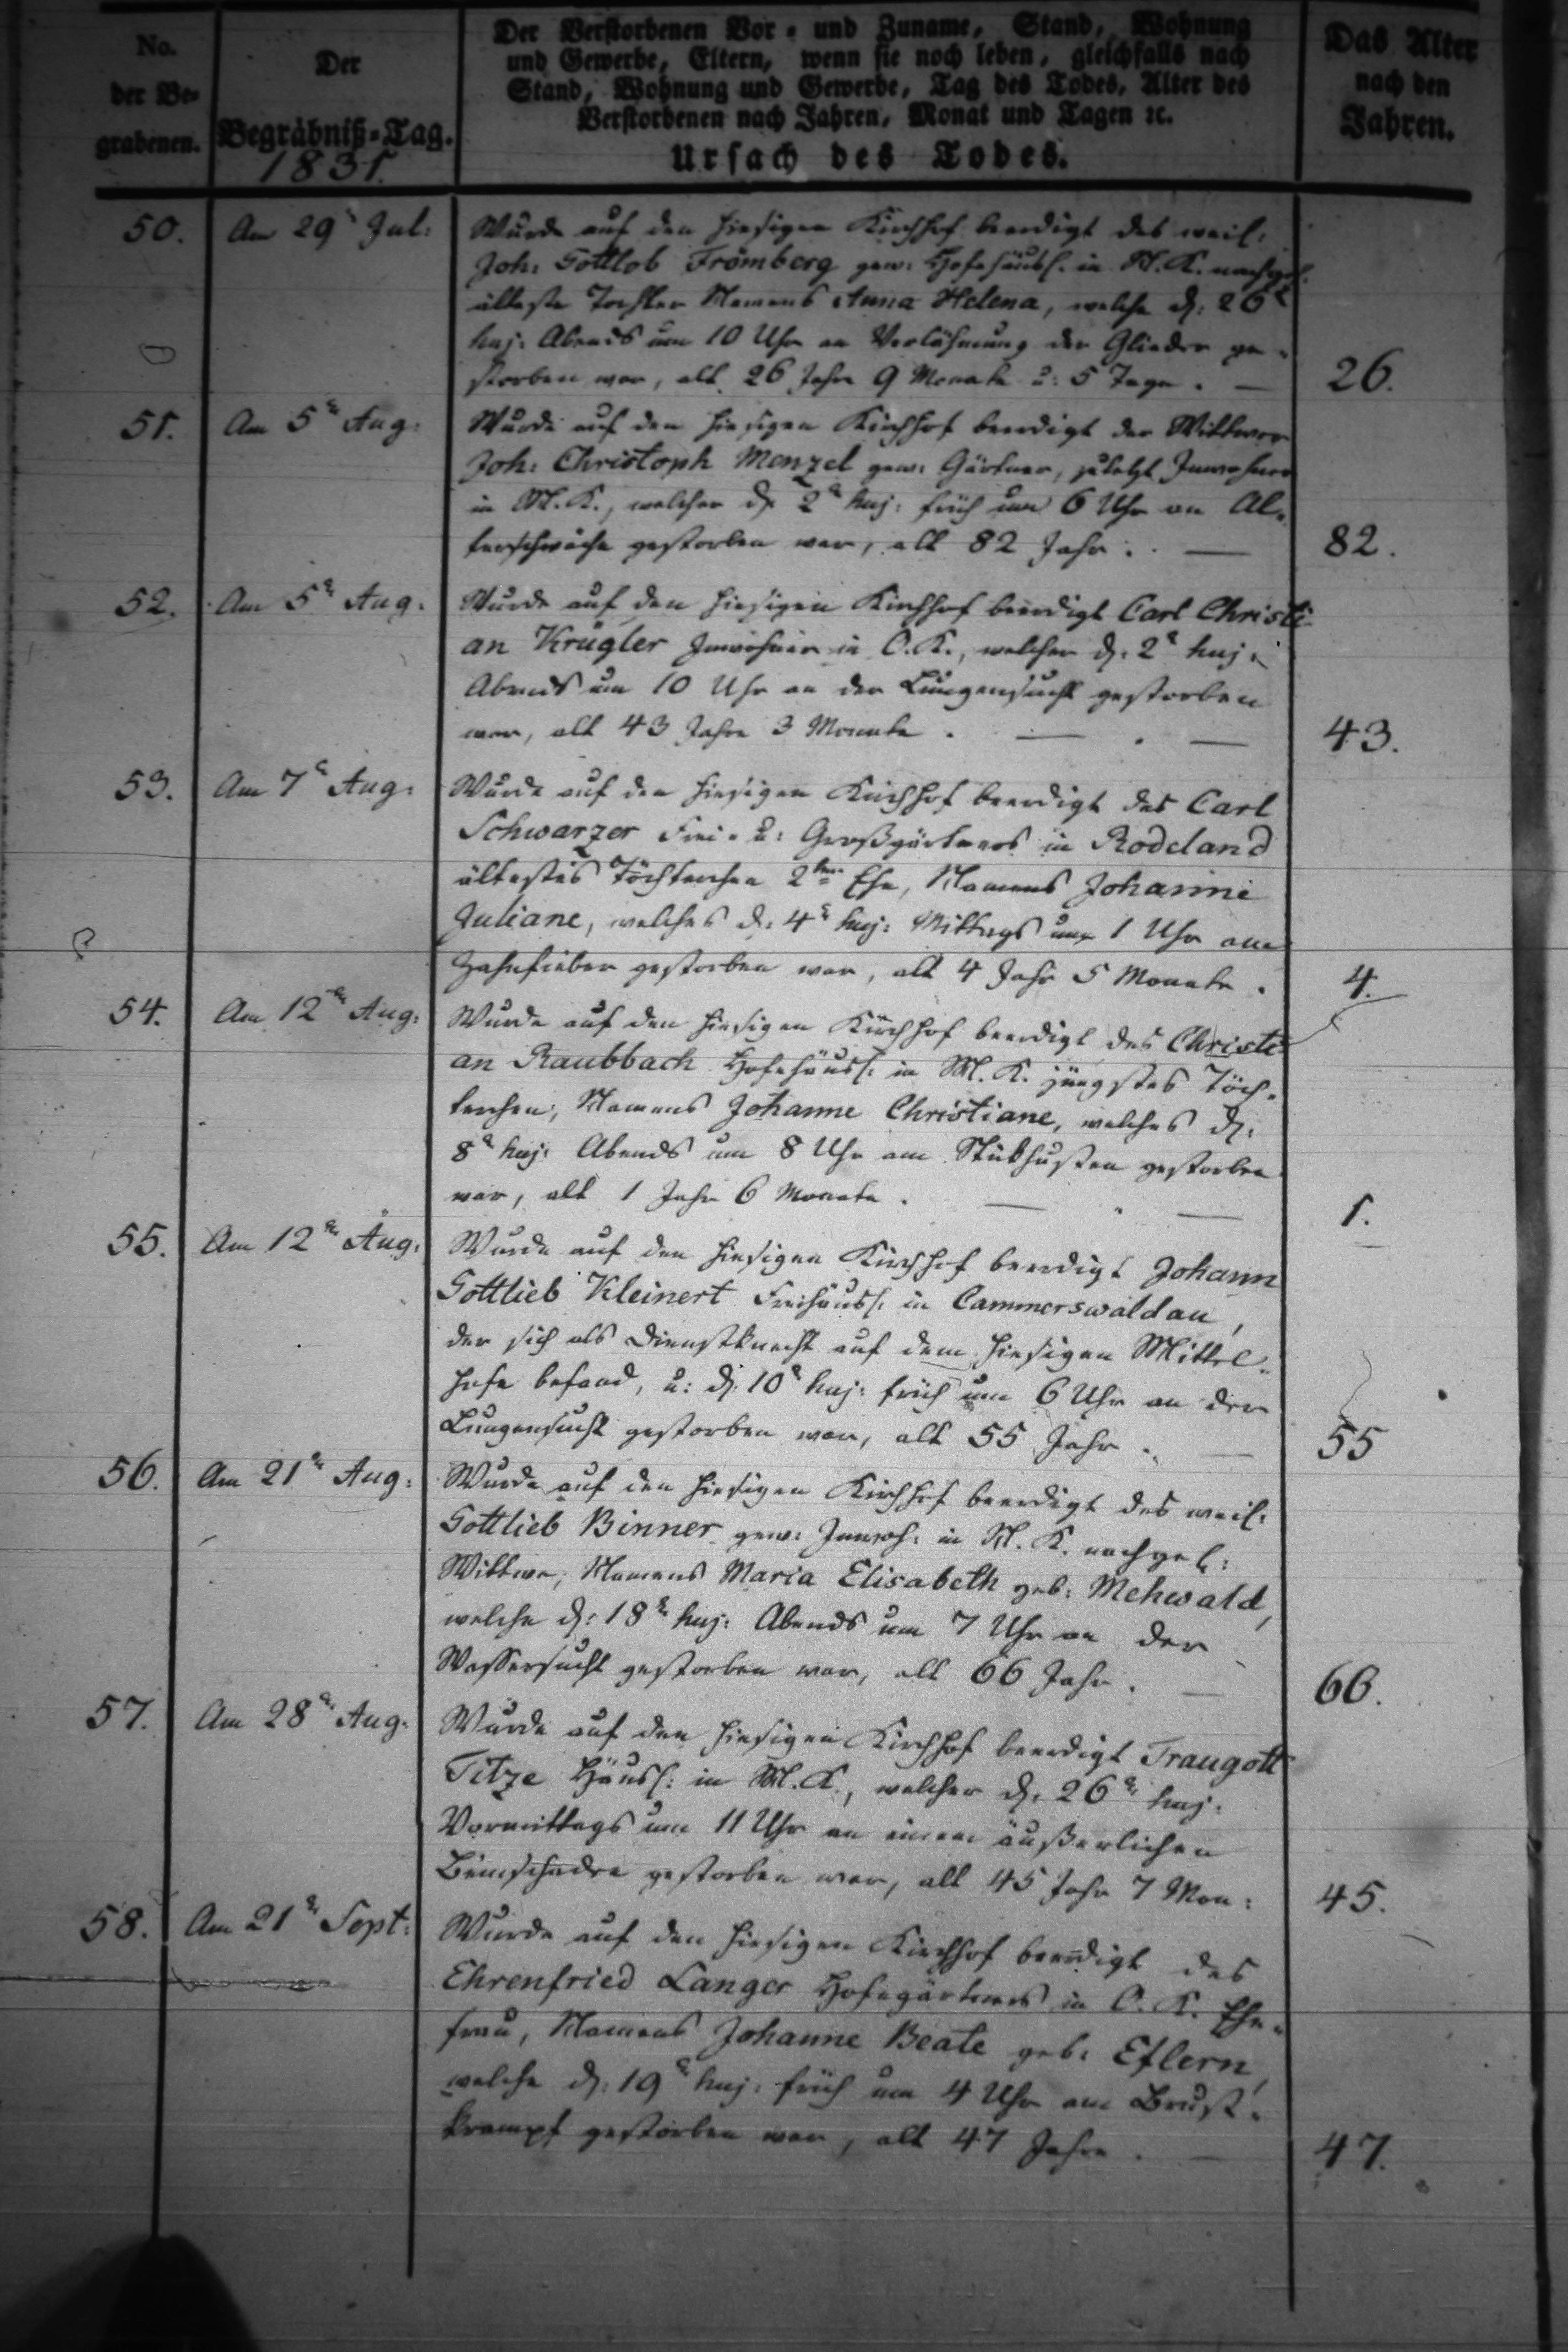 No.
der Be-
grabenen.
Der
Begräbniß-Tag.
1831.
Der Verstorbenen Vor- und Zuname, Stand, Wohnung
und Gewerbe, Eltern, wenn sie noch leben, gleichfalls nach
Stand, Wohnung und Gewerbe, Tag des Todes, Alter des
Verstorbenen nach Jahren, Monat und Tagen ꝛc.
Ursach des Todes.
Das Alter
nach den
Jahren.
50. Am 29 Jul: Wurde auf den hiesigen Kirchhof beerdigt des weil:
Joh: Gottlob Frömberg gew: Hofehäusl. in M. K. nachgel.
älteste Tochter Namens Anna Helena, welche d: 26
huj: Abends um 10 Uhr an Verlähmung der Glieder ge-
storben war, alt 26 Jahr 9 Monate u: 5 Tage. — 26.
51. Am 5 Aug: Wurde auf den hiesigen Kirchhof beerdigt der Wittwer
Joh: Christoph Menzel gew: Gärtner, zuletzt Inwohner
in M. K., welcher d: 2 huj: früh um 6 Uhr an Al-
terschwäche gestorben war, alt 82 Jahr. — 82.
52. Am 5 Aug: Wurde auf den hiesigen Kirchhof beerdigt Carl Christi
an Krügler Inwohner in O. K., welcher d: 2 huj:
Abends um 10 Uhr an der Lungensucht gestorben
war, alt 43 Jahre 3 Monate. — . — 43.
53. Am 7 Aug: Wurde auf den hiesigen Kirchhof beerdigt des Carl
Schwarzer Frei- u: Großgärtners in Rodeland
ältestes Töchterchen 2ter Ehe, Namens Johanne
Juliane, welches d: 4 huj: Mittags um 1 Uhr am
Zahnfieber gestorben war, alt 4 Jahr 5 Monate. 4.
54. Am 12 Aug: Wurde auf den hiesigen Kirchhof beerdigt des Christi
an Raubbach Hofehäusl: in M. K. jüngstes Töch-
terchen, Namens Johanne Christiane, welches d:
8 huj: Abends um 8 Uhr am Stickhusten gestorben
war, alt 1 Jahr 6 Monate. — . — 1.
55. Am 12 Aug: Wurde auf den hiesigen Kirchhof beerdigt Johann
Gottlieb Kleinert Freihäusl: in Cammerswaldau,
der sich als Dienstknecht auf dem hiesigen Mittel-
hofe befand, u: d: 10 huj: früh um 6 Uhr an der
Lungensucht gestorben war, alt 55 Jahr. — 55
56. Am 21 Aug: Wurde auf den hiesigen Kirchhof beerdigt des weil:
Gottlieb Binner gew: Inwoh: in M. K. nachgel:
Wittwe, Namens Maria Elisabeth geb: Mehwald,
welche d: 18 huj: Abends um 7 Uhr an der
Wassersucht gestorben war, alt 66 Jahr. — 66.
57. Am 28 Aug: Wurde auf den hiesigen Kirchhof beerdigt Traugott
Titze Häusl: in M. K., welcher d: 26 huj:
Vormittags um 11 Uhr an einem äußerlichen
gestorben war, alt 45 Jahr 7 Mon: 45.
58. Am 21 Sept: Wurde auf den hiesigen Kirchhof beerdigt des
Ehrenfried Langer Hofegärtners in O. K. Ehe-
frau, Namens Johanne Beate geb: Eflern,
welche d: 19 huj: früh um 4 Uhr am Brust-
krampf gestorben war, alt 47 Jahre. — 47.